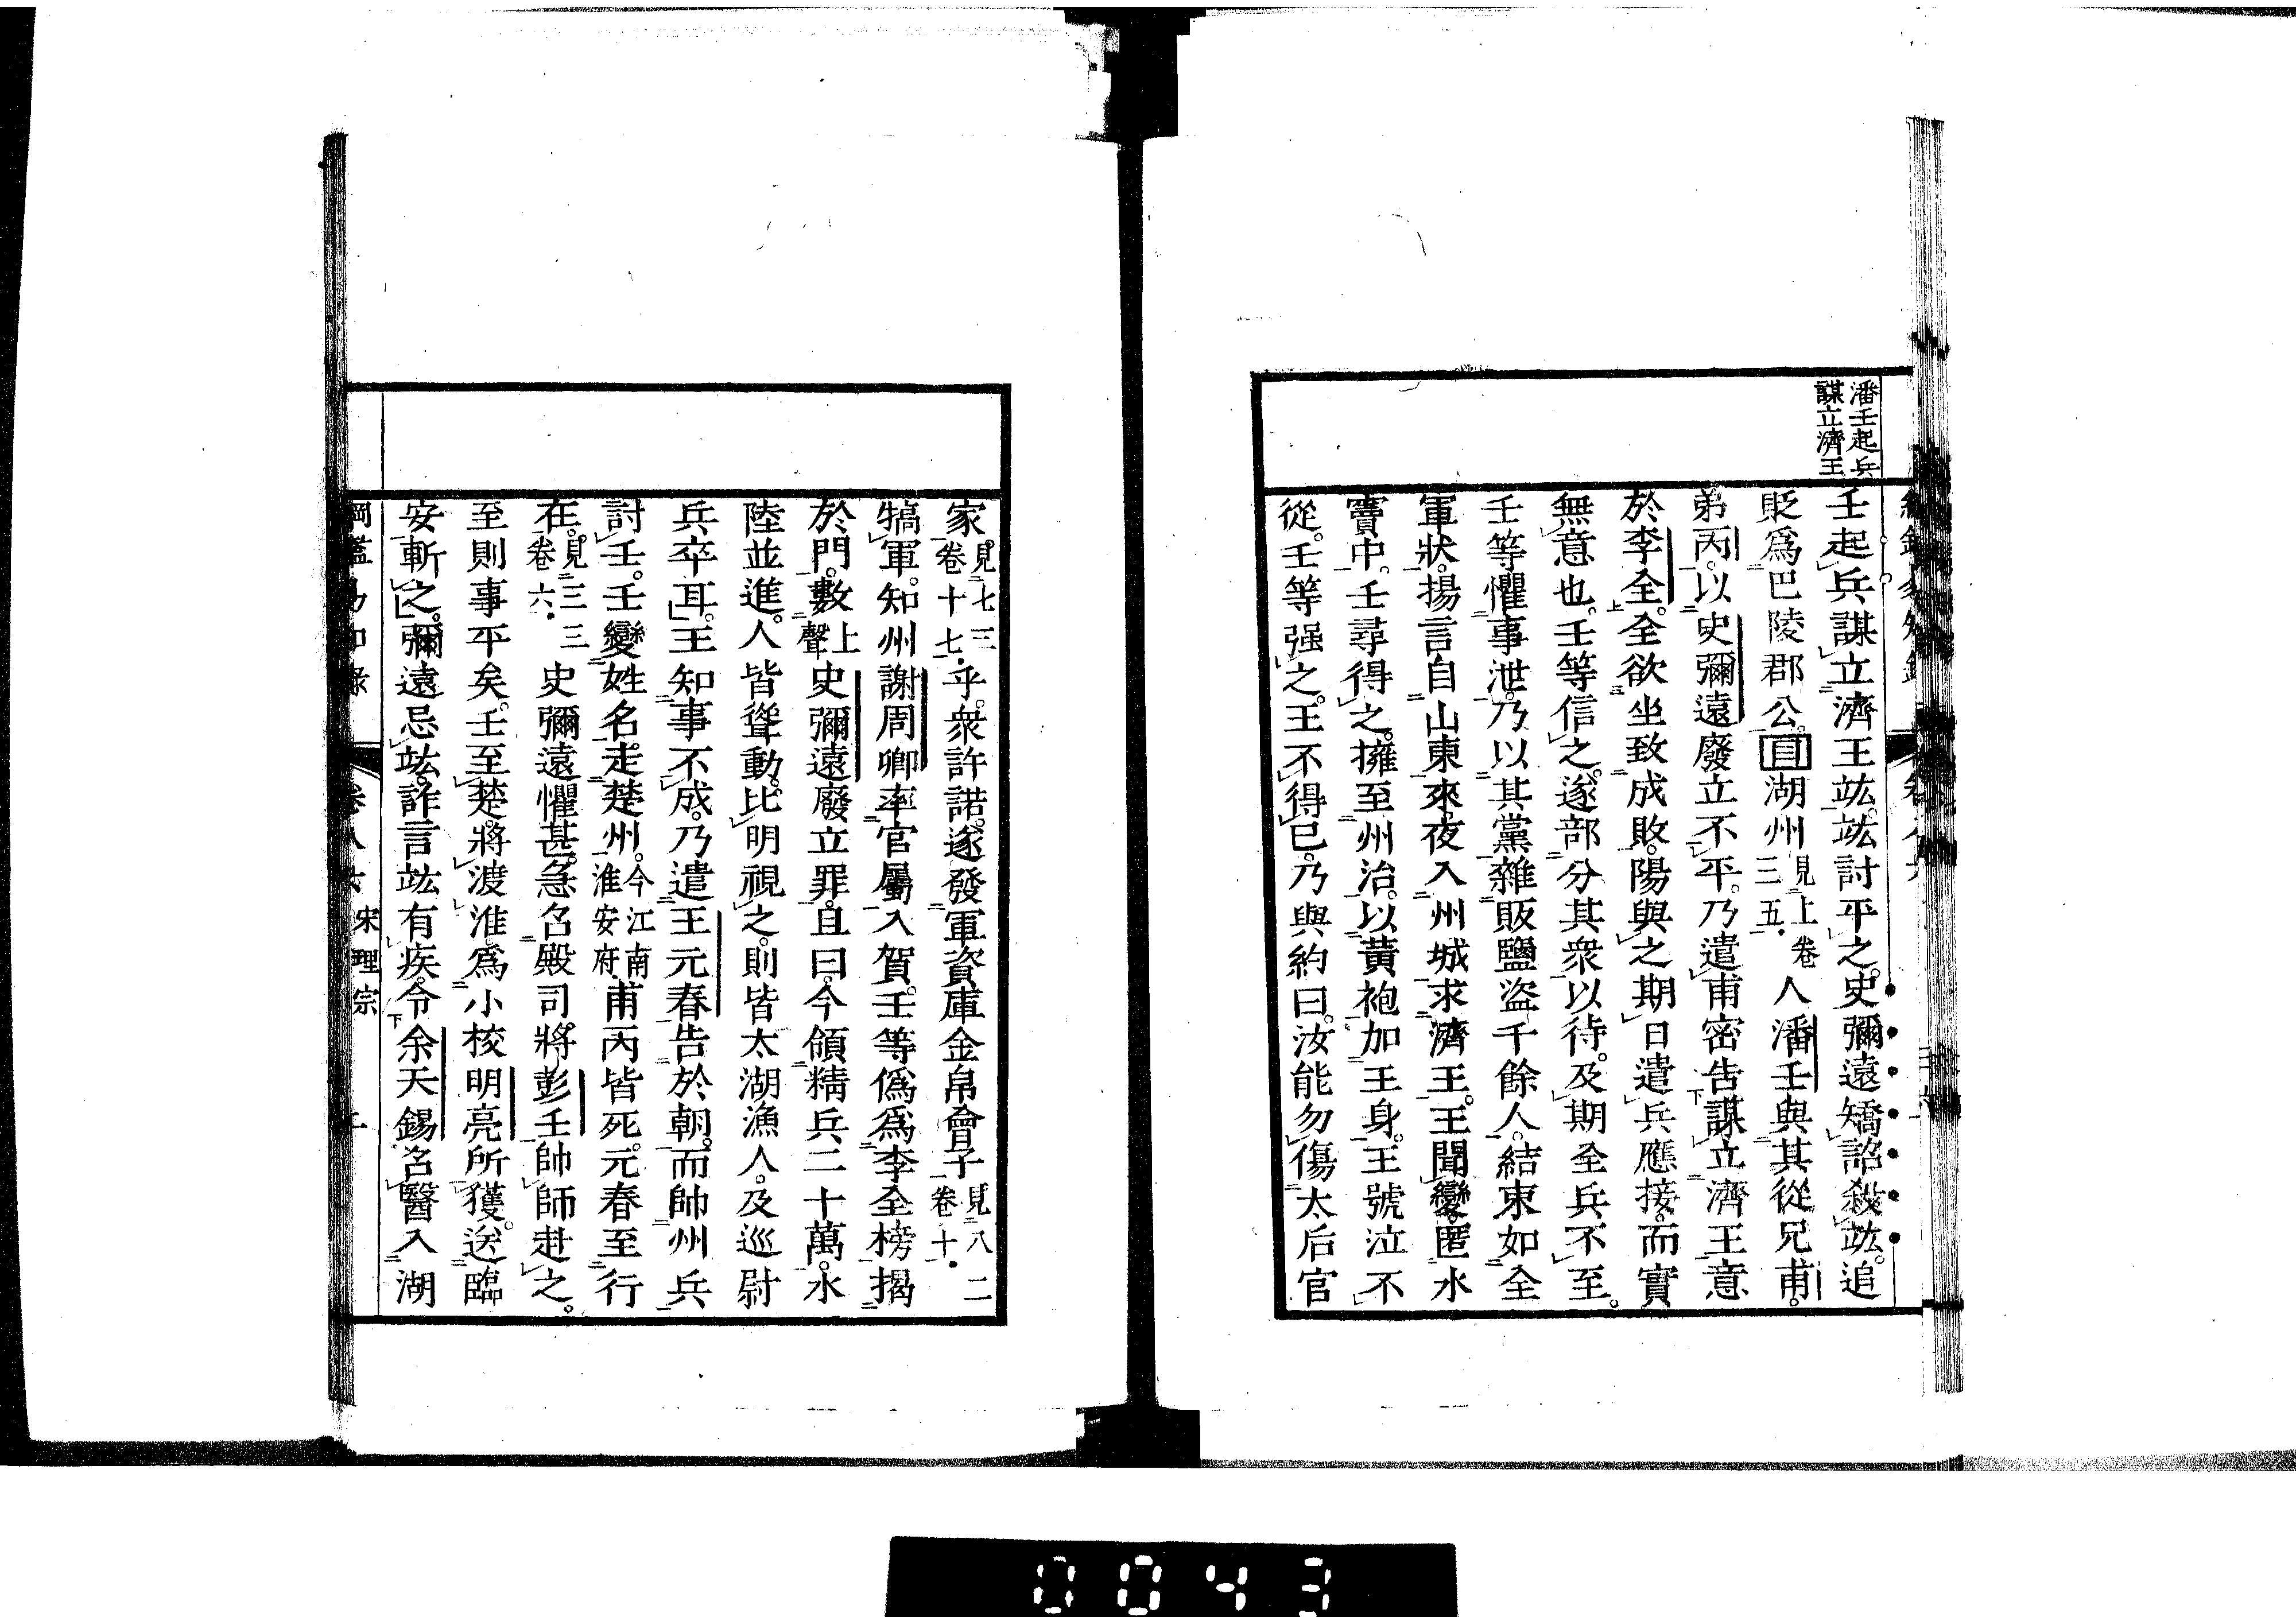 潘壬起兵
謀立濟王
壬起兵謀立濟王竑。竑討平之。史彌遠矯詔殺竑。追
貶爲巴陵郡公。目湖州見上卷三五。人潘壬與其從兄甫。
弟丙。以史彌遠廢立不平。乃遣甫密告謀立濟王意
於李全。全欲坐致成敗。陽與之期日遣兵應接。而實
無意也。壬等信之。遂部分其衆以待。及期全兵不至。
壬等懼事泄。乃以其黨雜販鹽盜千餘人。結束如全
軍狀。揚言自山東來。夜入州城求濟王。王聞變。匿水
竇中。壬尋得之。擁至州治。以黃袍加王身。王號泣不
從。壬等强之。王不得已。乃與約曰。汝能勿傷太后官
家。見七三卷十七。乎。衆許諾。遂發軍資庫金帛會子見八二卷十。
犒軍。知州謝周卿率官屬入賀。壬等僞爲李全榜揭
於門。數上聲史彌遠廢立罪。且曰。今領精兵二十萬。水
陸並進。人皆聳動。比明視之。則皆太湖漁人。及巡尉
兵卒耳。王知事不成。乃遣王元春告於朝。而帥州兵
討壬。壬變姓名。走楚州。今江南淮安府。甫丙皆死。元春至行
在。見三三卷六。史彌遠懼甚。急召殿司將。彭壬帥師赴之。
至則事平矣。壬至楚。將渡淮。爲小校明亮所獲。送臨
安斬之。彌遠忌竑。詐言竑有疾。令余天錫召醫入湖
綱鑑易知錄
卷八六
宋理宗
0043